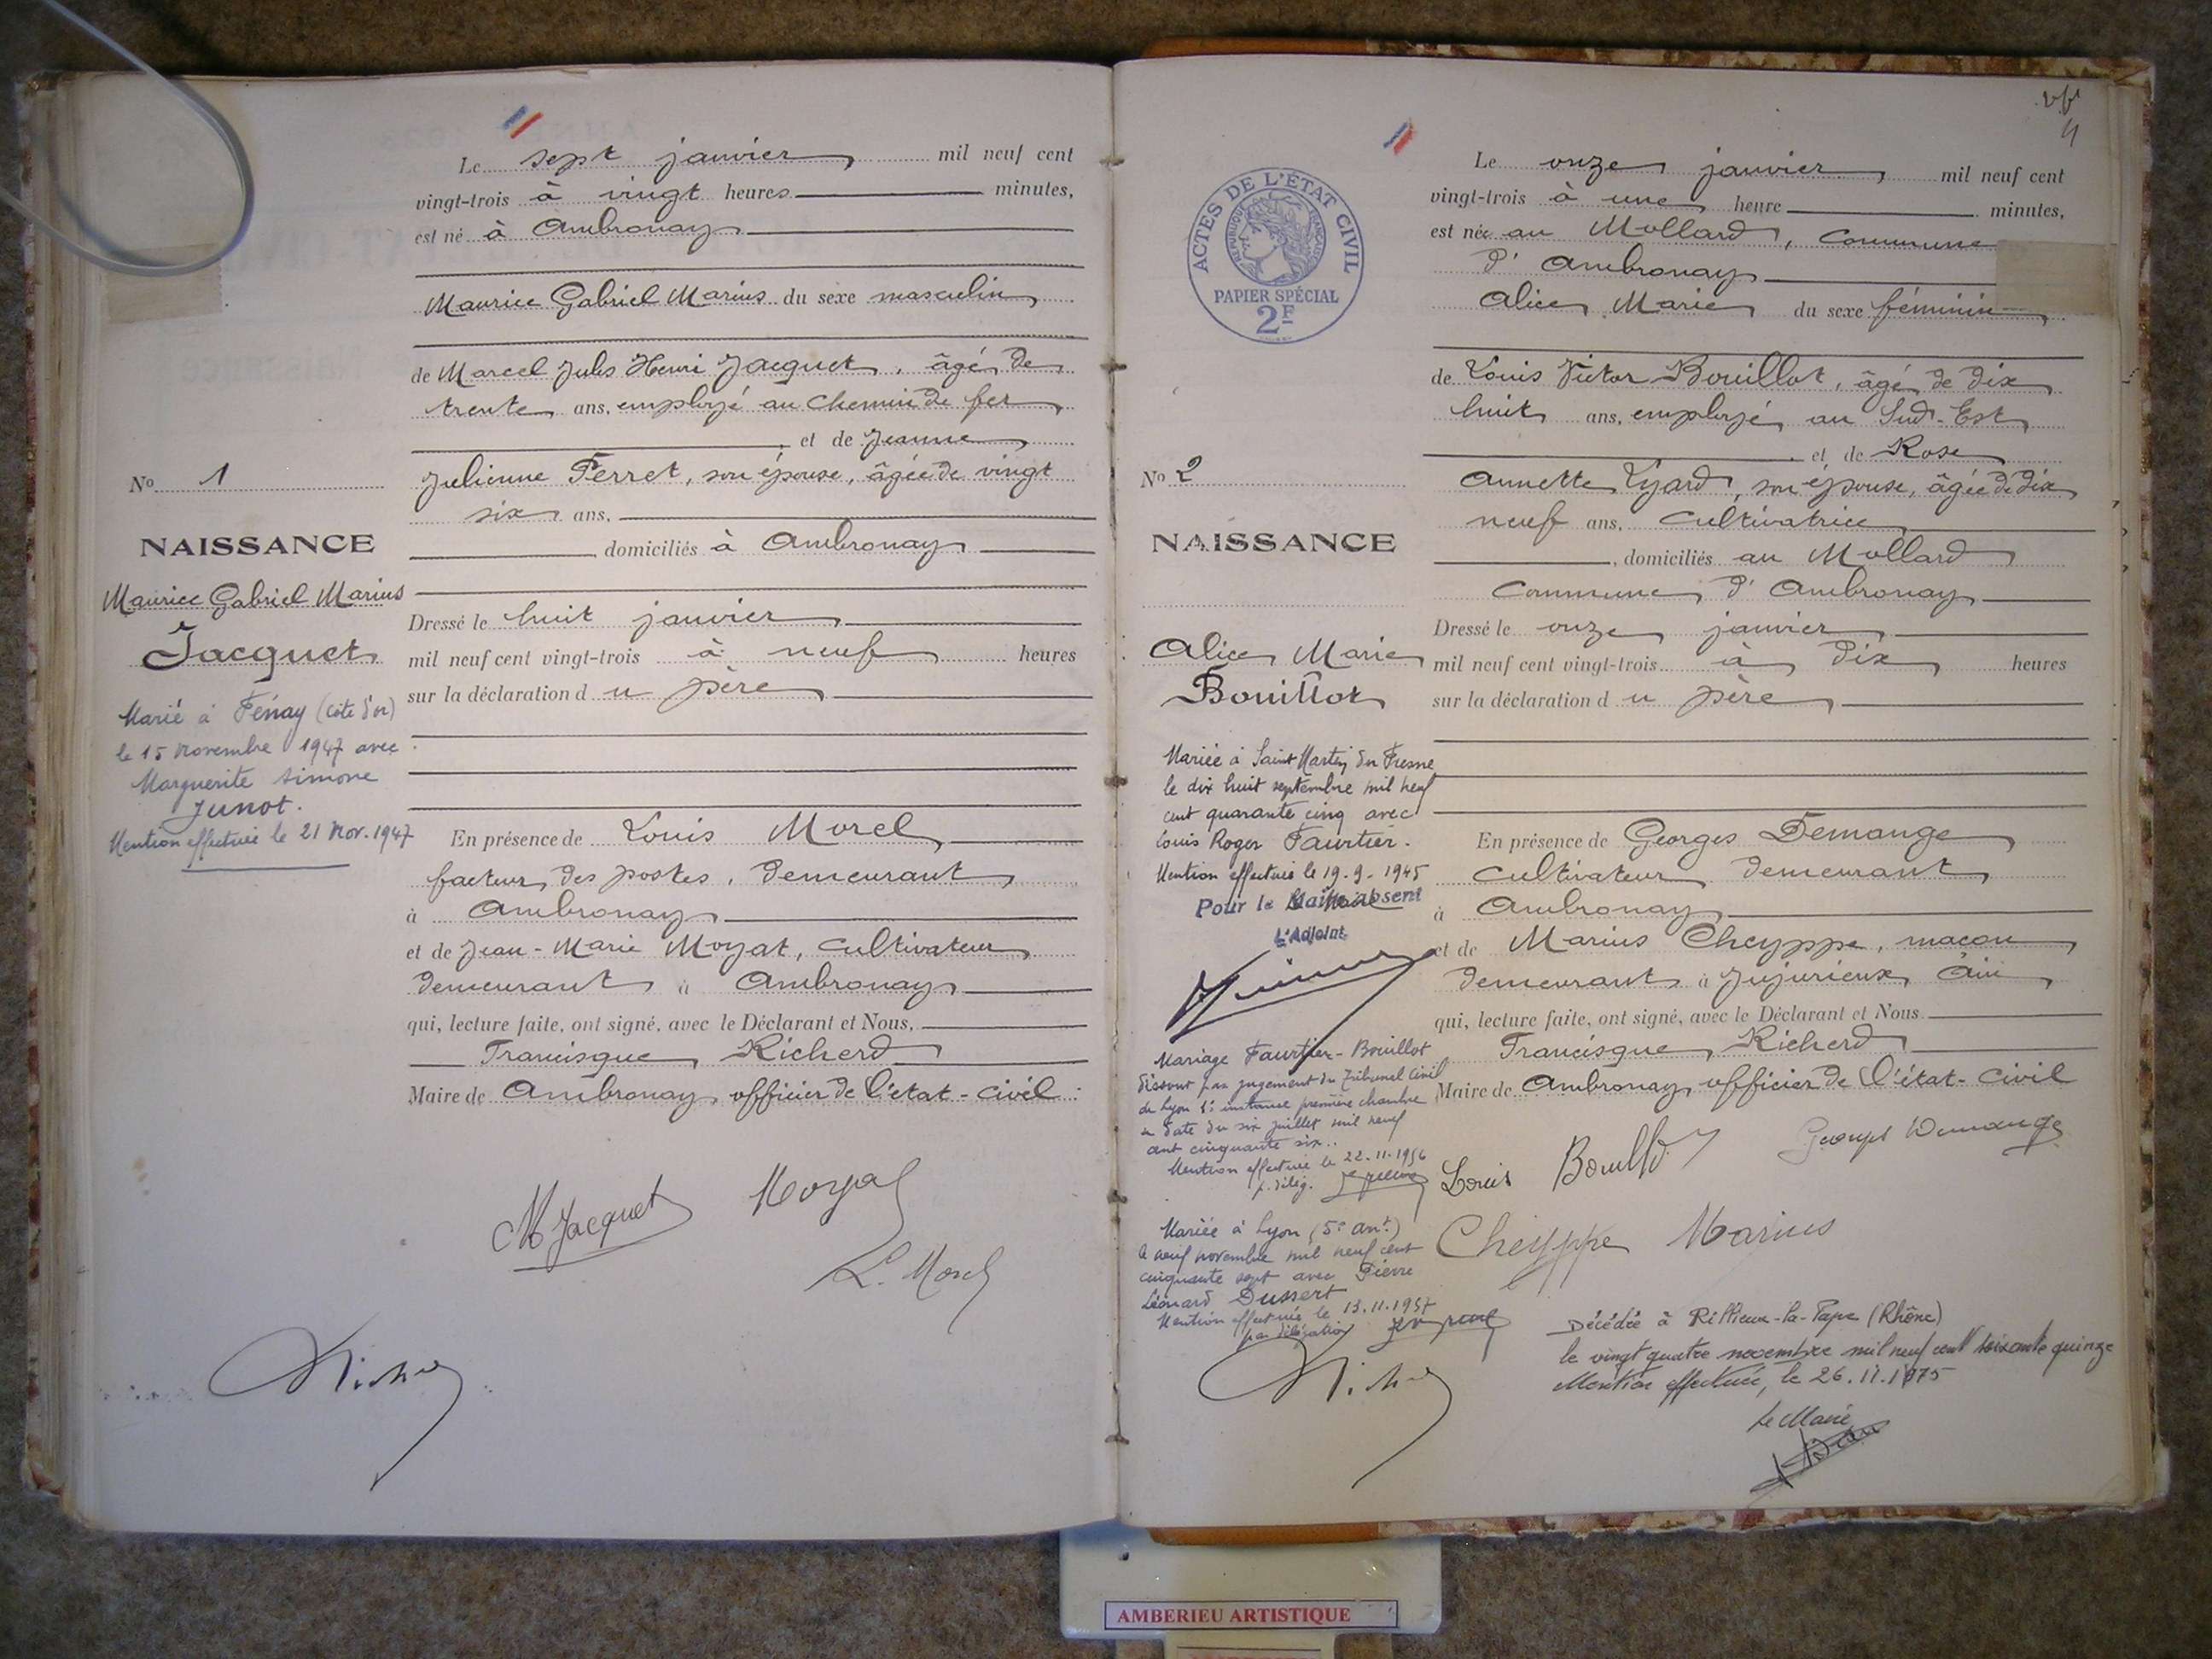 Le sept janvier mil neuf cent
vingt-trois à vingt heures minutes,
est né à Ambronay
Maurice Gabriel Marius du sexe masculin
de Marcel Jules Henri Jacquet, âgé de
trente ans, employé au Chemin de fer
, et de Jeanne
Julienne Perret, son épouse, âgée de vingt
six ans,
, domiciliés à Ambronay
Dressé le huit janvier
mil neuf cent vingt-trois à neuf heures
sur la déclaration du père
En présence de Louis Morel
facteur des postes, demeurant
à Ambronay
et de Jean-Marie Moyat, cultivateur
demeurant à Ambronay
qui, lecture faite, ont signé, avec le Déclarant et Nous,
Francisque Richerd
Maire de Ambronay officier de l'état-civil
No 1
NAISSANCE
Maurice Gabriel Marius
Jacquet
Marié à Fénay (Côte d'or)
le 15 novembre 1947 avec
Marguerite Simone
Junot.
Mention effectuée le 21 Nov. 1947
M Jacquet
Moyat
L. Morel
4
ACTES DE L'ÉTAT CIVIL
RÉPUBLIQUE FRANÇAISE
PAPIER SPÉCIAL
2F
Le onze janvier, mil neuf cent
vingt-trois à une heure minutes,
est née au Mollard, Commune
d'Ambronay
Alice Marie du sexe féminin
de Louis Victor Bouillot, âgé de dix
huit ans, employé au Sud-Est
, et de Rose
Annette Lyard, son épouse, âgée de dix
neuf ans, Cultivatrice
, domiciliés au Mollard
Commune d'Ambronay
Dressé le onze janvier
mil neuf cent vingt-trois à dix heures
sur la déclaration du père
En présence de Georges Demange
Cultivateur demeurant
à Ambronay
et de Marius Cheyppe, maçon
demeurant à Jujurieux Ain
qui, lecture faite, ont signé, avec le Déclarant et Nous.
Francisque Richerd
Maire de Ambronay officier de l'état-civil
No 2
NAISSANCE
Alice Marie
Bouillot
Mariée à Saint Martin du Fresne
le dix huit septembre mil neuf
cent quarante cinq avec
Louis Roger Faurtier.
Mention effectuée le 19.9.1945
Pour le Maire absent
L'Adjoint
Mariage Faurtier-Bouillot
dissout par jugement du Tribunal Civil
de Lyon 1e instance première chambre
en date du six juillet mil neuf
cent cinquante six..
Mention effectuée le 22.11.1956
p. délég.
Mariée à Lyon (5e arrt.)
le neuf novembre mil neuf cent
cinquante sept avec Pierre
Léonard Dussert
Mention effectuée le 13.11.1957
par délégation
Louis Bouillot
Georges Demange
Cheyppe Marius
Décédée à Rillieux-la-Pape (Rhône)
le vingt quatre novembre mil neuf cent soixante quinze
Mention effectuée, le 26.11.1975
Le Maire
AMBERIEU ARTISTIQUE